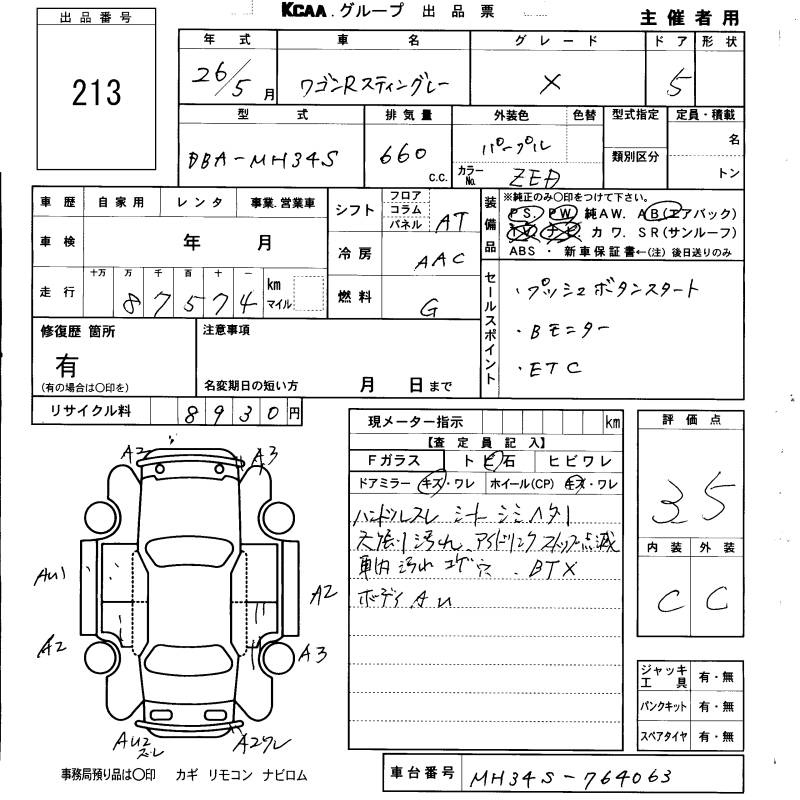 KCAA.グループ 出品票
主催者用
出品番号
213
年式 車名 グレード ドア 形状
26/5月 ワゴンRスティングレー X 5
型式 排気量 外装色 色替 型式指定 定員・積載
DBA-MH34S 660 c.c. パープル 名
カラーNo. ZED 類別区分 トン
車歴 自家用 レンタ 事業.営業車
車検 年 月
走行 十万 万 千 百 十 一 km マイル
87574
シフト フロア コラム パネル AT
冷房 AAC
燃料 G
装備品
※純正のみ〇印をつけて下さい。
PS. PW 純AW. AB(エアバック)
カワ. SR(サンルーフ)
ABS ・ 新車保証書←(注)後日送りのみ
セールスポイント
・プッシュボタンスタート
・Bモニター
・ETC
修復歴 箇所
有
(有の場合は〇印を)
注意事項
名変期日の短い方 月 日まで
リサイクル料 8930円
現メーター指示 km
【査定員記入】
Fガラス トビ石 ヒビワレ
ドアミラー キズ・ワレ ホイール(CP) キズ・ワレ
ハンドルスレ シートシミハタ1
天張リ汚れ、アイドリングストップ点滅
車内汚れコゲ穴 . BTX
ボディAU
評価点
35
内装 外装
C C
ジャッキ工具 有・無
パンクキット 有・無
スペアタイヤ 有・無
A2 A3
AU1 A2
A2 A3
AU2 ズレ A2ワレ
事務局預り品は〇印 カギ リモコン ナビロム
車台番号 MH34S-764063